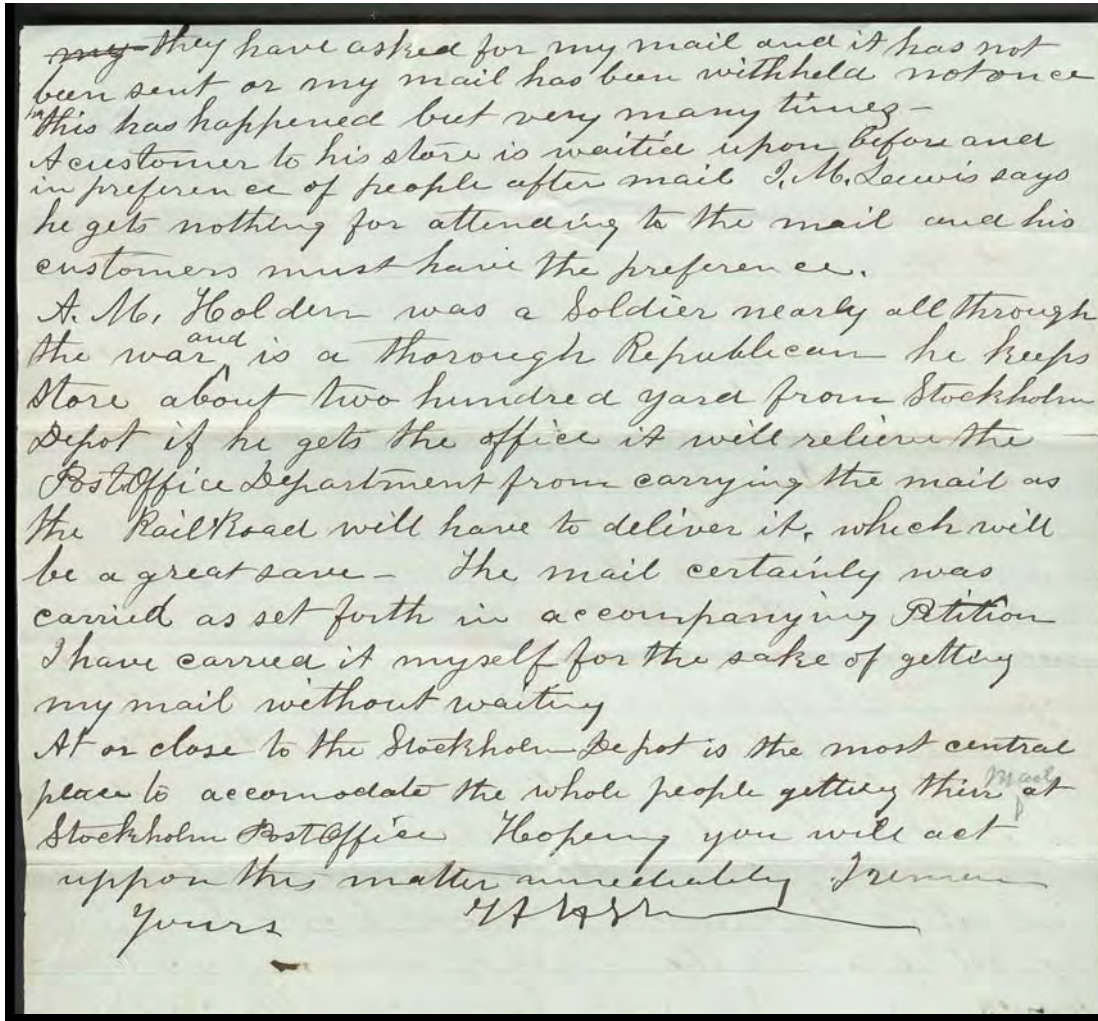 my they have asked for my mail and it has not
been sent or my mail has been withheld not once
this has happened but very many times -
A customer to his store is waitid upon before and
in preference of people after mail J. M. Lewis says
he gets nothing for attending to the mail and his
customers must have the preference.
A. M. Holden was a Soldier nearly all through
the war and is a thorough Republican he keeps
store about two hundred yard from Stockholm
Depot if he gets the office it will relieve the
PostOffice Department from carrying the mail as
the RailRoad will have to deliver it, which will
be a great save - The mail certainly was
carried as set forth in accompanying Petition
I have carried it myself for the sake of getting
my mail without waiting
At or close to the Stockholm Depot is the most central
place to accomodate the whole people getting their mail at
Stockholm PostOffice Hopeing you will act
uppon this matter immediately I remain
Yours